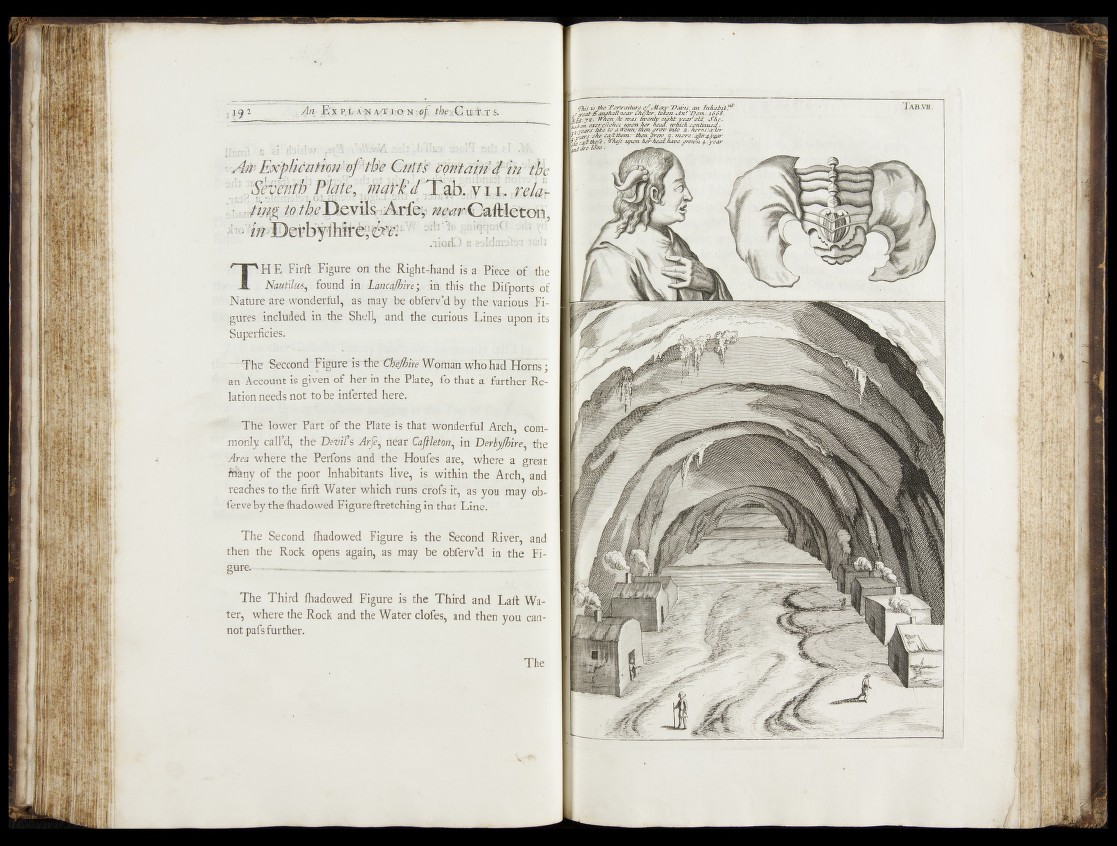 192 An EXPLANATION of the CUTTS.
An Explication of the Cutts contain'd in the
Seventh Plate, mark'd Tab. VII. rela-
ting to the Devils Arſe, near Caſtleton,
in Derbyſhire, &c.
THE Firſt Figure on the Right-hand is a Piece of the
Nautilus, found in Lancaſhire; in this the Diſports of
Nature are wonderful, as may be obſerv'd by the various Fi-
gures included in the Shell, and the curious Lines upon its
Superficies.
The Seccond Figure is the Cheſhire Woman who had Horns;
an Account is given of her in the Plate, ſo that a further Re-
lation needs not to be inſerted here.
The lower Part of the Plate is that wonderful Arch, com-
monly call'd, the Devil's Arſe, near Caſtleton, in Derbyſhire, the
Area where the Perſons and the Houſes are, where a great
many of the poor Inhabitants live, is within the Arch, and
reaches to the firſt Water which runs croſs it, as you may ob-
ſerve by the ſhadowed Figure ſtretching in that Line.
The Second ſhadowed Figure is the Second River, and
then the Rock opens again, as may be obſerv'd in the Fi-
gure.
The Third ſhadowed Figure is the Third and Laſt Wa-
ter, where the Rock and the Water cloſes, and then you can-
not paſs further.
The
This is the Portraiture of Mary Davis, an Inhabit.nt
of great Saughall near Cheſter, taken An.o Dom. 1668.
When ſhe was twenty eight years old She
upon her head, which continued
years like to a Wenn, then grew into 2 horns after
years ſhe caſt them: then grew 2 more after 4 year
ſhe caſt theſe. Theſe upon her head have grown 4 year
TAB. VII.